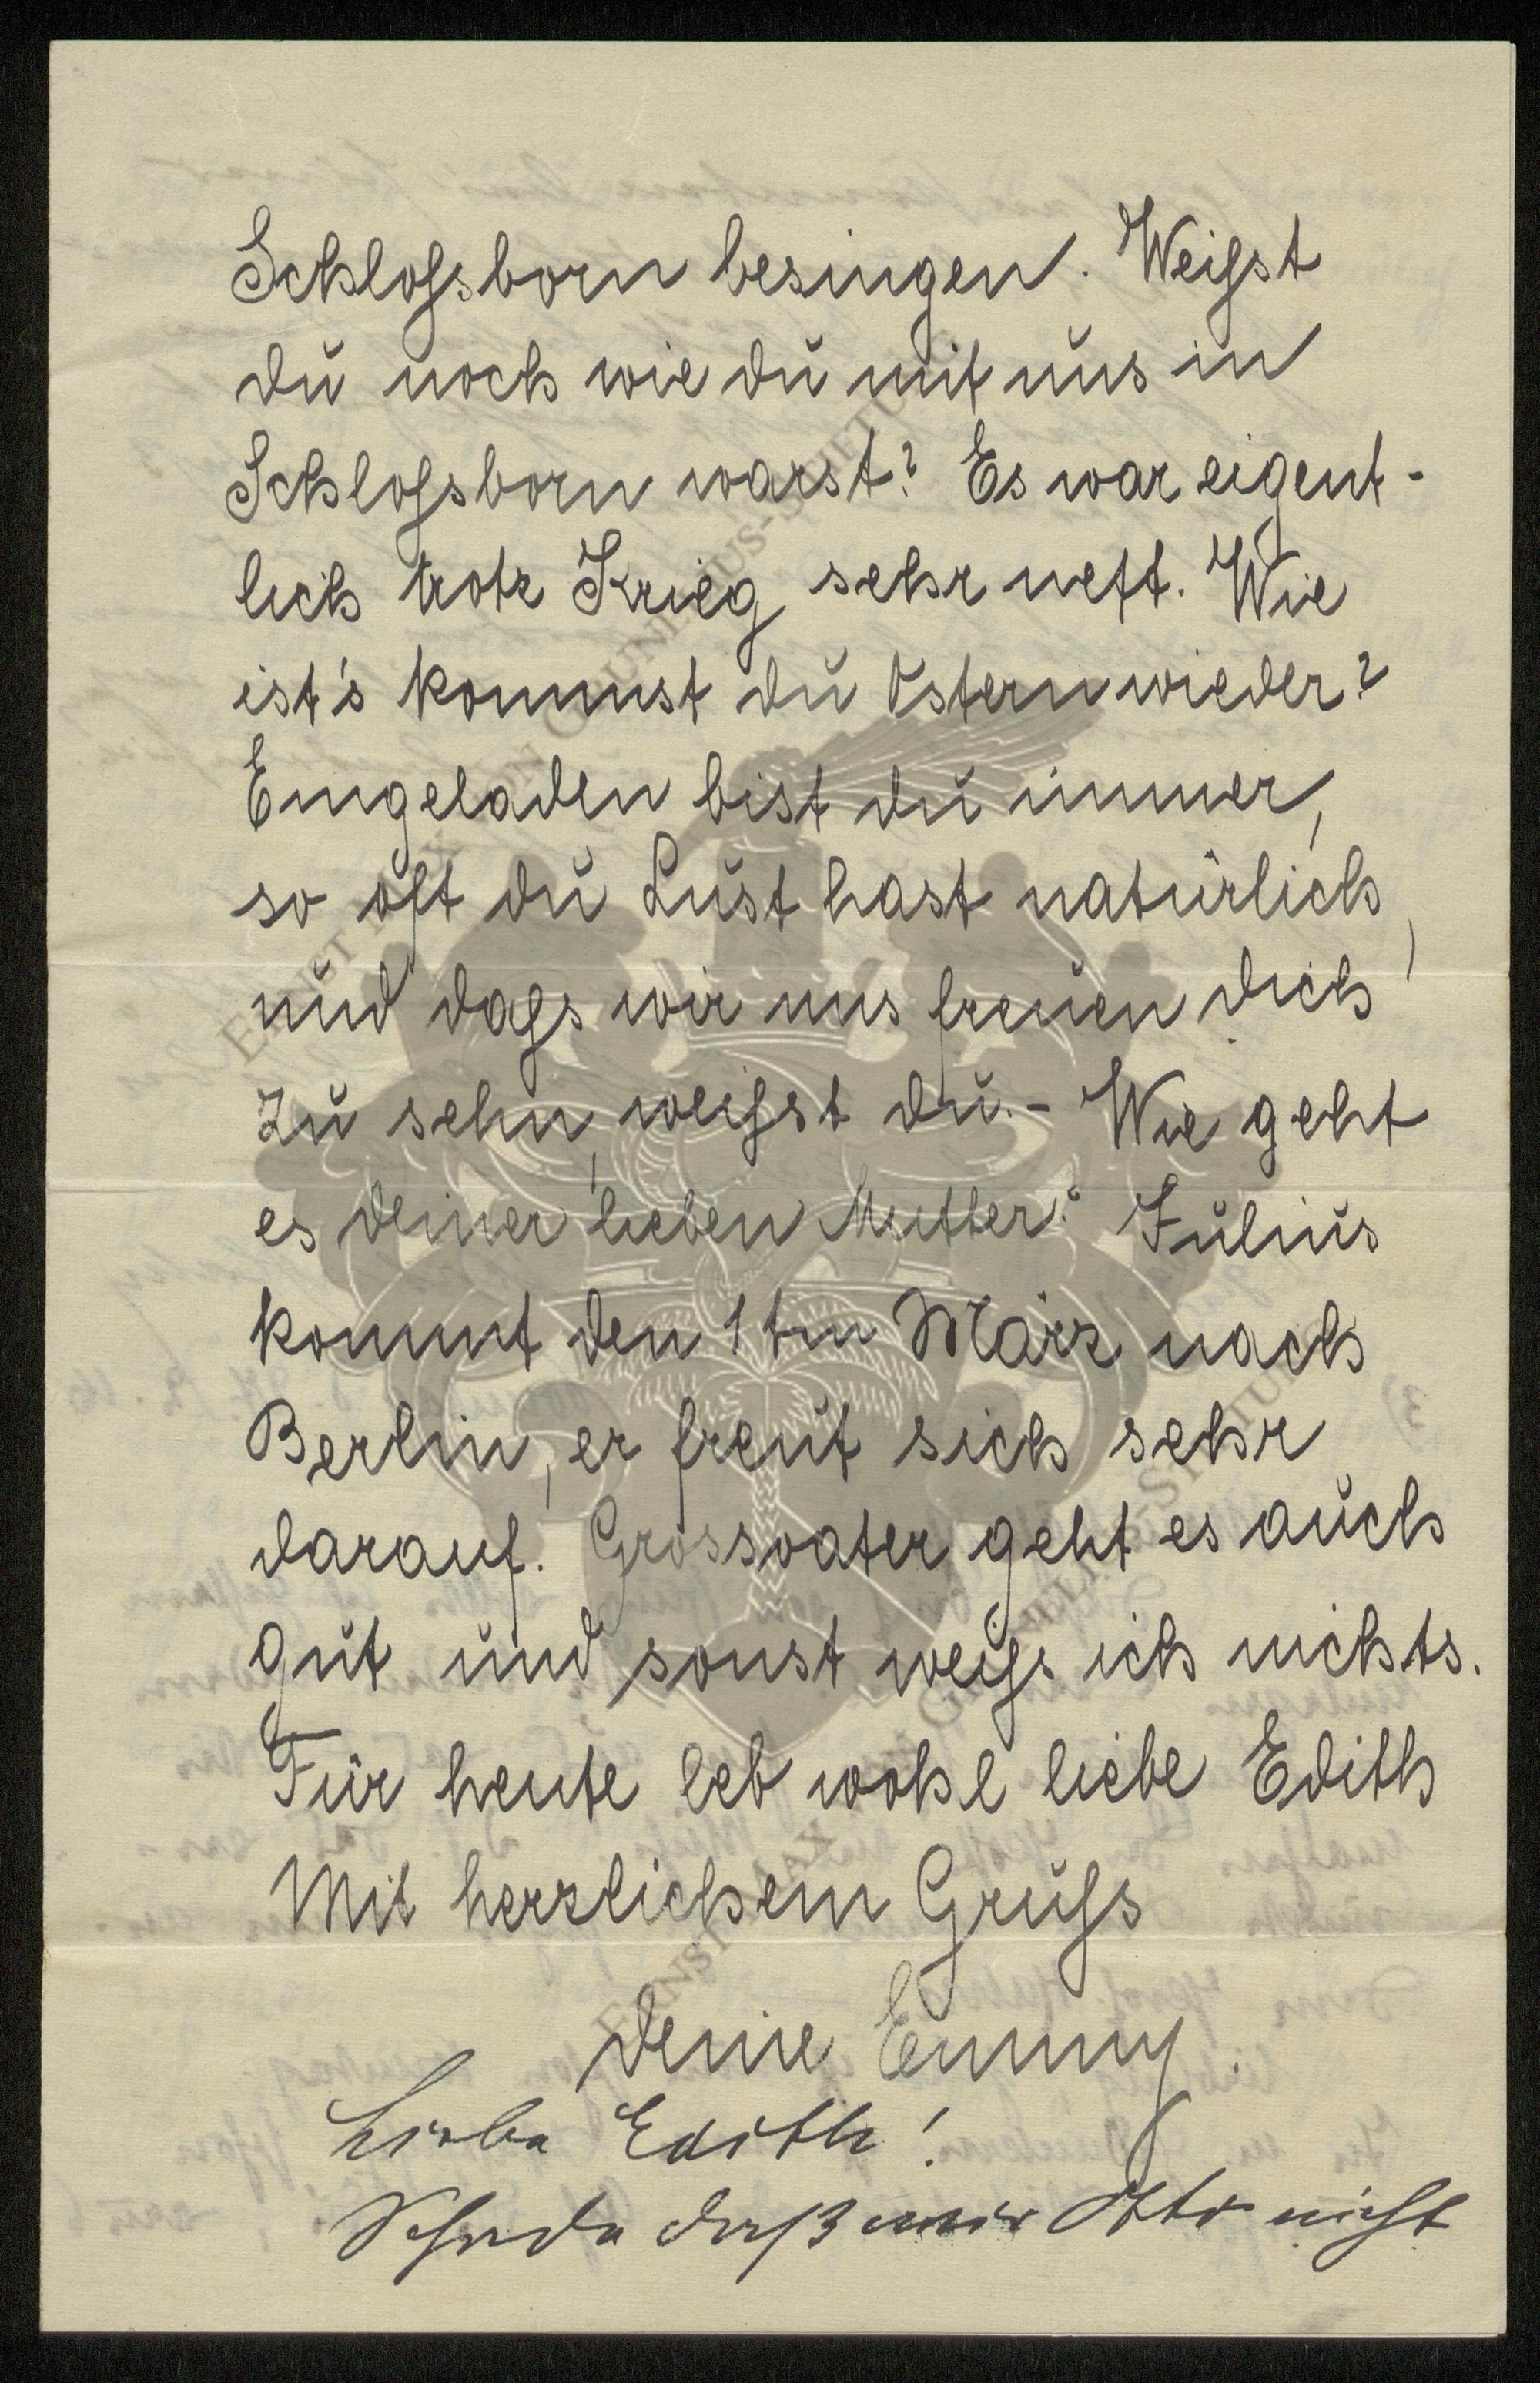 Schlossborn besingen. Weisst
du noch wie du mit uns in
Schlossborn warst? Es war eigent-
lich trotz Krieg sehr nett. Wie
ist's kommst du Ostern wieder?
Eingeladen bist du immer,
so oft du Lust hast natürlich,
und dass wir uns freuen dich
zu sehn, weisst du. - Wie geht
es deiner lieben Mutter? Julius
kommt den 1ten März nach
Berlin, er freut sich sehr
darauf. Grossvater geht es auch
gut und sonst weiss ich nichts.
Für heute leb wohl liebe Edith
Mit herzlichem Gruss
deine Emmy.
Liebe Edith!
Schade daß Otto nicht